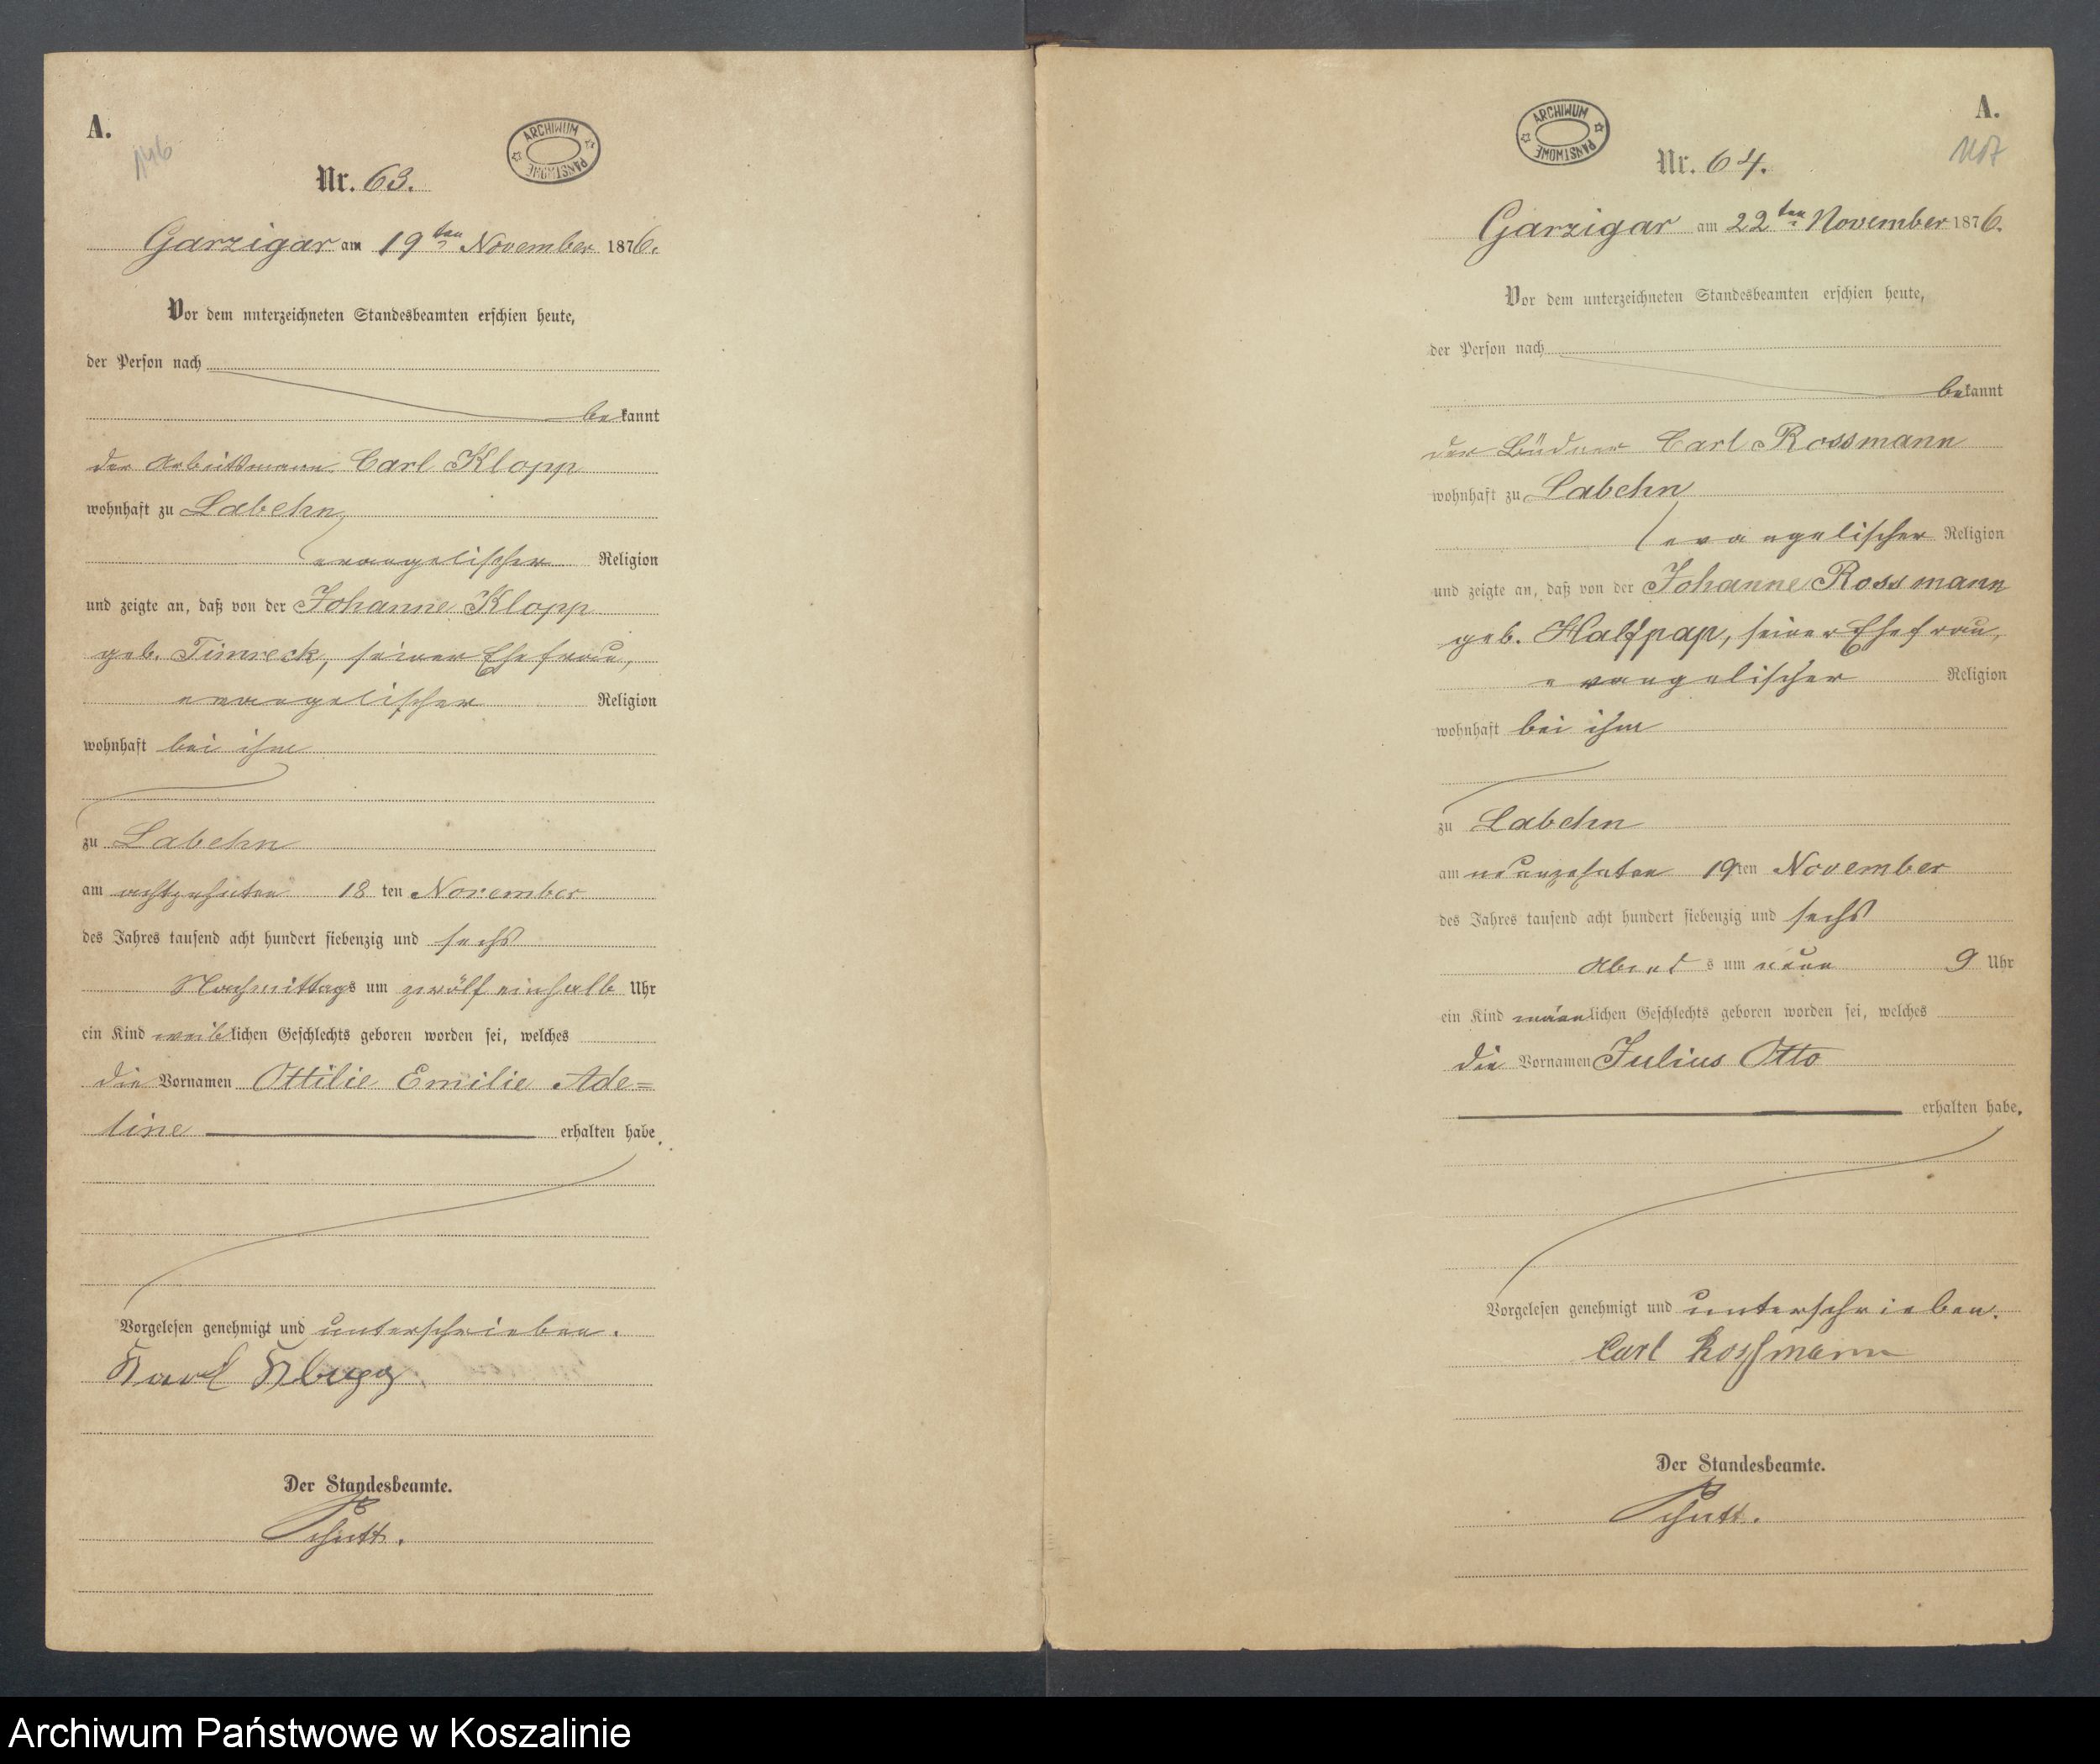 A.
146
ARCHIWUM PAŃSTWOWE
Nr. 63.
Garzigar am 19ten November 1876.
Vor dem unterzeichneten Standesbeamten erschien heute,
der Person nach
bekannt
der Arbeitsmann Carl Klopp
wohnhaft zu Labehn,
evangelischer Religion
und zeigte an, daß von der Johanne Klopp
geb. Timreck, seiner Ehefrau,
evangelischer Religion
wohnhaft bei ihm
zu Labehn
am achtzehnten 18 ten November
des Jahres tausend acht hundert siebenzig und sechs
Nachmittags um zwölf einhalb Uhr
ein Kind weiblichen Geschlechts geboren worden sei, welches
die Vornamen Ottilie Emilie Ade=
line erhalten habe.
Vorgelesen genehmigt und unterschrieben.
Karl Klopp
Der Standesbeamte.
A.
ARCHIWUM PAŃSTWOWE
Nr. 64.
Garzigar am 22ten November 1876.
Vor dem unterzeichneten Standesbeamten erschien heute,
der Person nach
bekannt
der Büdner Carl Rossmann
wohnhaft zu Labehn
evangelischer Religion
und zeigte an, daß von der Johanne Rossmann
geb. Halfpap, seiner Ehefrau,
evangelischer Religion
wohnhaft bei ihm
zu Labehn
am neunzehnten 19ten November
des Jahres tausend acht hundert siebenzig und sechs
Abends um neun 9 Uhr
ein Kind männlichen Geschlechts geboren worden sei, welches
die Vornamen Julius Otto
erhalten habe.
Vorgelesen genehmigt und unterschrieben.
Carl Rossmann
Der Standesbeamte.
Archiwum Państwowe w Koszalinie